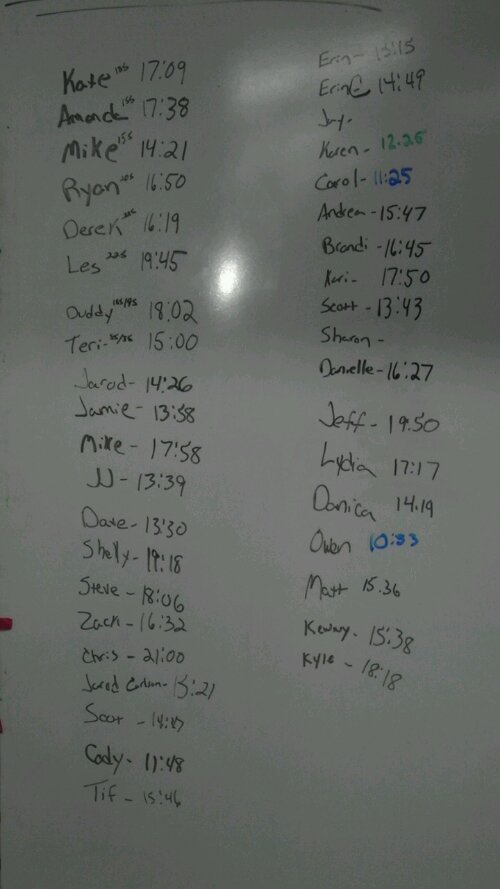 Kate 155 17:09
Amanda 155 17:38
Mike 155 14:21
Ryan 16:50
Derek 16:19
Les 225 19:45
Duddy 18:02
Teri- 15:00
Jarod- 14:26
Jamie- 13:58
Mike- 17:58
JJ - 13:39
Dave- 13:30
Shelly- 19:18
Steve- 18:06
Zach- 16:32
Chris - 21:00
Jared Carlson-
Scot -
Cody- 11:48
Tif - 15:46
Erin- 13:15
Erin C 14:49
Jay-
Karen- 12:26
Carol- 11:25
Andrea- 15:47
Brandi- 16:45
Kari- 17:50
Scott- 13:43
Sharon-
Danielle- 16:27
Jeff- 19:50
Lydia 17:17
Danica 14:19
Owen 10:33
Matt 15.36
Kenny. 15:38
Kyle - 18:18